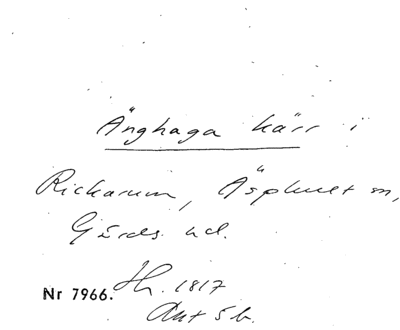 Änghaga kärr i
Rickarum, Äsphult sn,
Gärds hd.
Nr 7966. Hh. 1817
Akt 5 b.